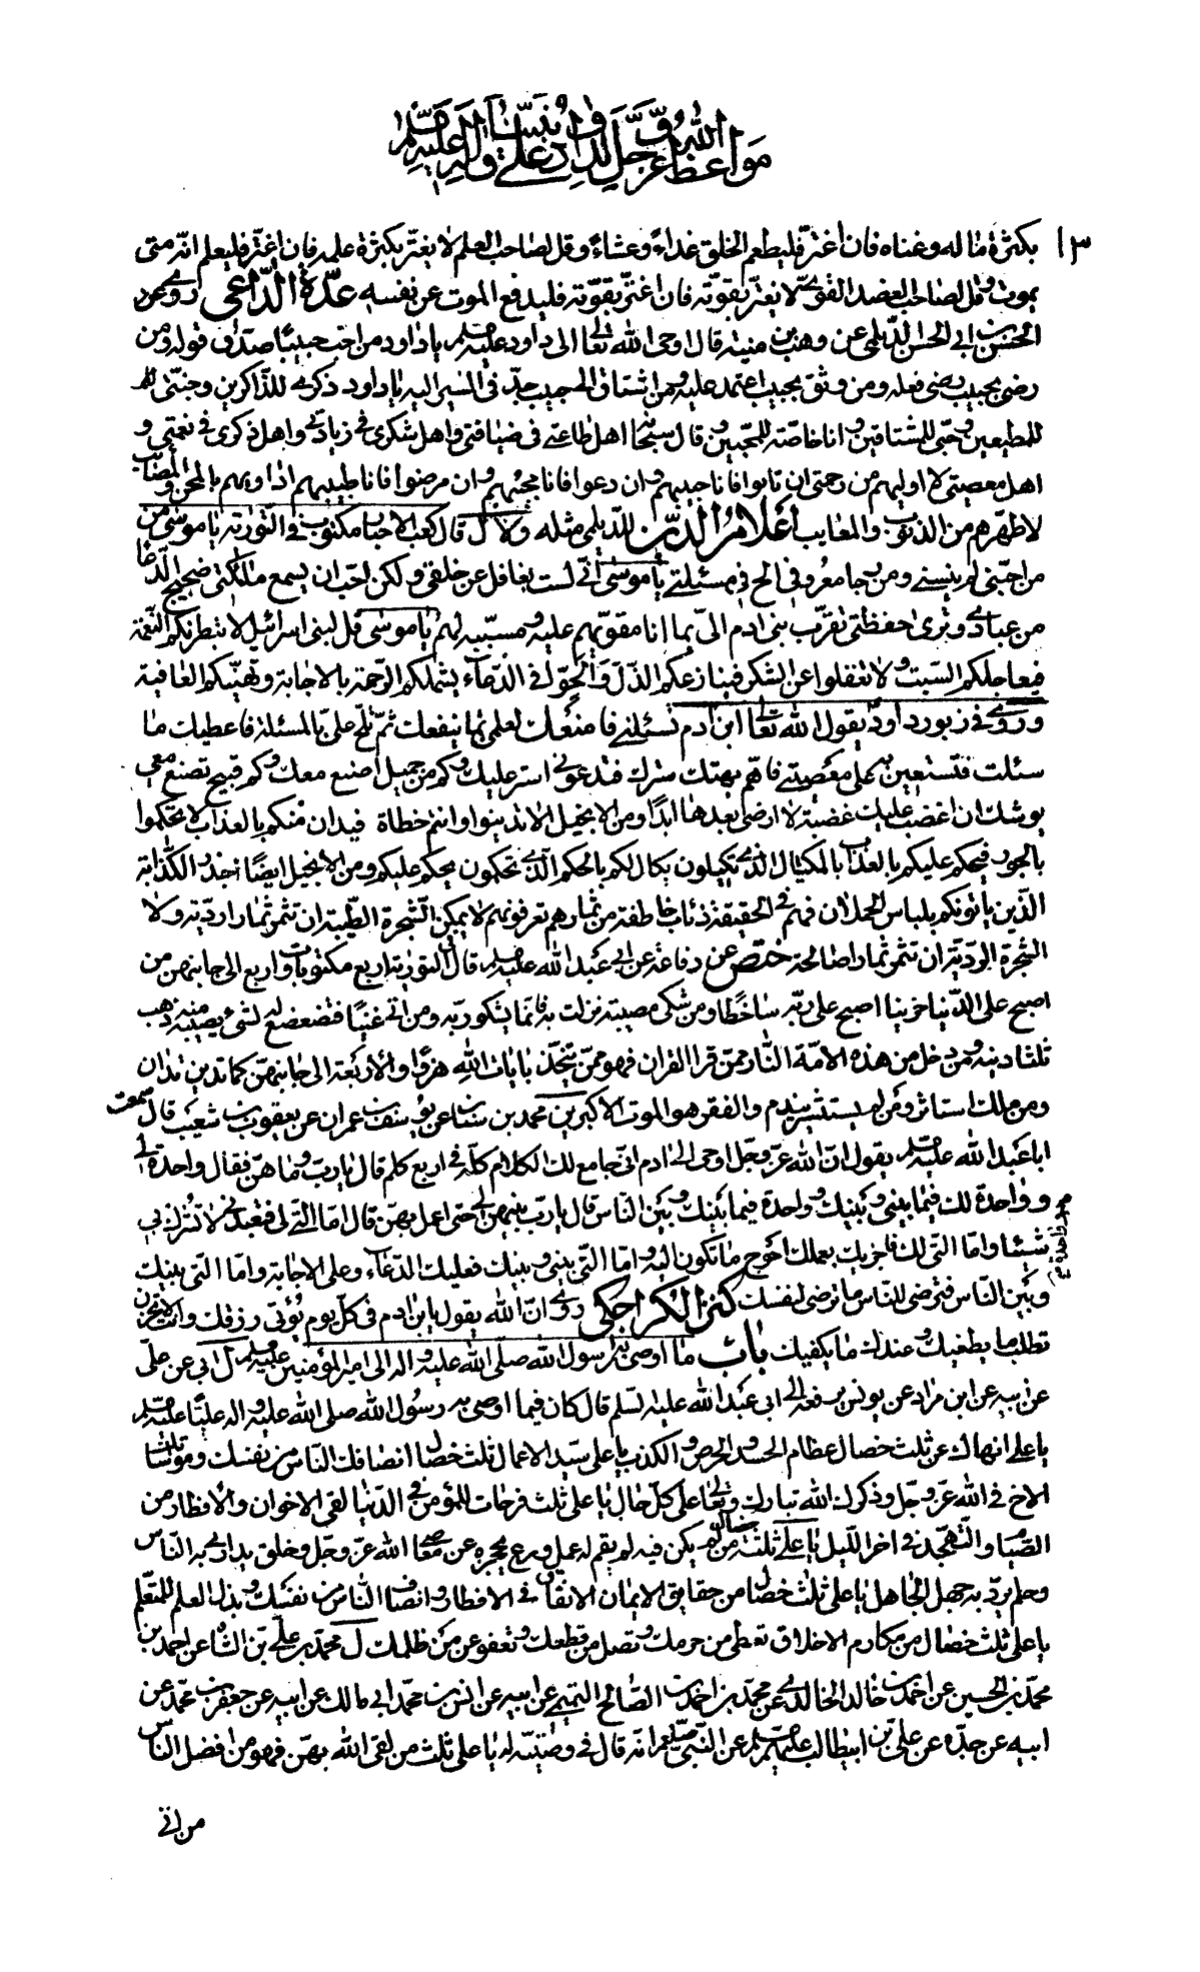 مواعظ الله عزّ وجلّ في القرآن وعلى نبيّنا وآله وعليهم
١٣
بكثرة ماله وغناه فان اغترّ فليطعم الخلق غداءً وعشاءً وقل لصاحب العلم لا يغترّ بكثرة علمه فان اغترّ فليعلم انه متى
يموت وقل لصاحب العضد القوىّ لا يغترّ بقوّته فان اغترّ بقوّته فليدفع الموت عن نفسه عدّة الدّاعى روى عن
الحسن بن ابى الحسن الدّيلمى عن وهب بن منبّه قال اوحى الله تعالى الى داود يا داود من احبّ حبيبًا صدّق قوله ومن
رضى بحبيب رضى فعله ومن وثق بحبيب اعتمد عليه ومن اشتاق الى حبيب جدّ فى السّير اليه يا داود ذكرى للذّاكرين وجنّتى
للمطيعين وحبّى للمشتاقين وانا خاصّة للمحبّين وقال سبحانه اهل طاعتى فى ضيافتى واهل شكرى فى زيادتى واهل ذكرى فى نعمتى و
اهل معصيتى لا اويسهم من رحمتى ان تابوا فانا حبيبهم وان دعوا فانا مجيبهم وان مرضوا فانا طبيبهم اداويهم بالمحن والمصائب
لاطهّرهم من الذنوب والمعايب اعلام الدّين للدّيلمى مثله وقال قال كعب الاحبار مكتوب فى التّورية يا موسى من
احبّنى لم ينسنى ومن رجا معروفى الحّ فى مسئلتى يا موسى انّى لست بغافل عن خلقى ولكن احبّ ان يسمع ملائكتى ضجيج الدّعاء
من عبادى وترى حفظتى تقرّب بنى ادم الىّ بما انا مقوّيهم عليه ومسبّبه لهم يا موسى قل لبنى اسرائيل لا تبطرنّكم النّعمة
فيعاجلكم السّلب ولا تغفلوا عن الشكر فينازعكم الذّل والحّوا فى الدّعاء يشملكم الرّحمة بالاجابة وتهنّيكم العافية
وروى فى زبور داود يقول الله تعالى ابن ادم تسئلنى فامنعك لعلمى بما ينفعك ثمّ تلحّ علىّ بالمسئلة فاعطيك ما
سئلت فتستعين به على معصيتى فاهمّ بهتك سترك فتدعونى فاستر عليك وكم من جميل اصنع معك وكم قبيح تصنع معى
يوشك ان اغضب عليك غضبة لا ارضى بعدها ابدًا ومن الانجيل لا تدينوا وانتم خطاة فيدان منكم بالعذاب لا تحكموا
بالجور فيحكم عليكم بالعذاب بالمكيال الذى تكيلون يكال لكم بالحكم الّذى تحكمون يحكم عليكم ومن الانجيل ايضًا احذروا الكذابة
الّذين ياتونكم بلباس الحملان فهم فى الحقيقة ذئاب خاطفة من ثمارهم تعرفونهم لا يمكن الشّجرة الطّيّبة ان تثمر ثمارا رديّة ولا
الشّجرة الرديّة ان تثمر ثمارا صالحة ختص عن رفاعة عن ابى عبد الله قال فى التورية اربع مكتوبات واربع الى جانبهنّ من
اصبح على الدّنيا حزينا اصبح على ربّه ساخطًا ومن شكى مصيبة نزلت به فانّما يشكو ربّه ومن اتى غنيًّا فتضعضع له لشىء يصيبه منه ذهب
ثلثا دينه ومن دخل من هذه الامّة النّار ممّن قرا القران فهو ممّن يتّخذ بايات الله هزوًا والاربعة الى جانبهنّ كما تدين تدان
ومن ملك استاثر ومن لم يستشر يندم والفقر هو الموت الاكبر ين محمد بن سنان عن يوسف بن عمران عن يعقوب بن شعيب قال سمعت
ابا عبد الله يقول انّ الله عزّ وجلّ اوحى الى ادم انّى جامع لك الكلام كلّه فى اربع كلم قال يا ربّ وما هنّ فقال واحدة لى
وواحدة لك فيما بينى وبينك وواحدة فيما بينك وبين النّاس قال يا ربّ بيّنهنّ لى حتى اعمل بهنّ قال امّا الّتى لى فتعبدنى لا تشرك بى
شيئا وامّا التى لك فاجزيك بعملك احوج ما تكون اليه وامّا الّتى بينى وبينك فعليك الدّعاء وعلىّ الاجابة وامّا التى بينك
وبين النّاس فترضى للنّاس ما ترضى لنفسك كنز الكراجكى روى انّ الله يقول يا بن ادم فى كلّ يوم يؤتى رزقك وانت تحزن
تطلب ما يطغيك وعندك ما يكفيك باب ما اوصى به رسول الله صلى الله عليه واله الى امير المؤمنين ل ابى عن على
عن ابيه عن ابن مرّار عن يونس يرفعه الى ابى عبد الله عليه السّلم قال كان فيما اوصى به رسول الله صلى الله عليه واله عليًّا
يا على انهاك عن ثلث خصال عظام الحسد والحرص والكذب يا على سيّد الاعمال ثلث خصال انصافك النّاس من نفسك ومواساتك
الاخ فى الله عزّ وجلّ وذكرك الله تبارك وتعالى على كلّ حال يا على ثلث فرحات للمؤمن فى الدّنيا لقى الاخوان والافطار من
الصّيام والتّهجّد فى اخر اللّيل يا على ثلثة من لم يكن فيه لم يقم له عمل ورع يحجزه عن معاصى الله عزّ وجلّ وخلق يدارى به النّاس
وحلم يردّ به جهل الجاهل يا على ثلث خصال من حقايق الايمان الانفاق فى الاقتار وانصاف النّاس من نفسك وبذل العلم للمتعلّم
يا على ثلث خصال من مكارم الاخلاق تعطى من حرمك وتصل من قطعك وتعفو عن من ظلمك ل محمّد بن علىّ بن الشّاه عن احمد بن
محمّد بن الحسين عن احمد بن خالد الخالدى عن محمّد بن احمد بن الصّالح التميمى عن ابيه عن انس بن محمّد ابى مالك عن ابيه عن جعفر بن محمّد عن
ابيه عن جدّه عن على بن ابيطالب عن النّبى انه قال فى وصيّته له يا على ثلث من لقى الله بهنّ فهو من افضل النّاس
من اتى